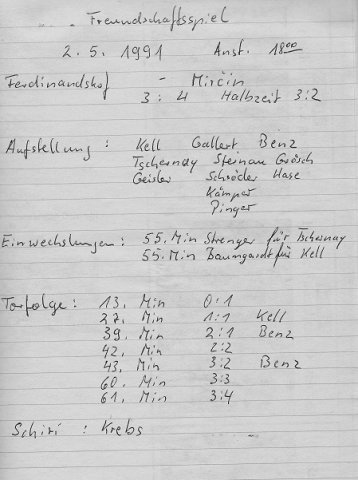 Freundschaftsspiel
2.5. 1991 Anst. 18⁰⁰
Ferdinandshof - Mirčin
3 : 4 Halbzeit 3:2
Aufstellung : Kell Gallert Benz
Tschernay Steinau Grösch
Geisler Schröder Hase
Kämper
Pinger
Einwechslungen: 55. Min Strenger für Tschernay
55. Min Baumgardt für Kell
Torfolge: 13. Min 0:1
27. Min 1:1 Kell
39. Min 2:1 Benz
42. Min 2:2
43. Min 3:2 Benz
60. Min 3:3
61. Min 3:4
Schiri : Krebs